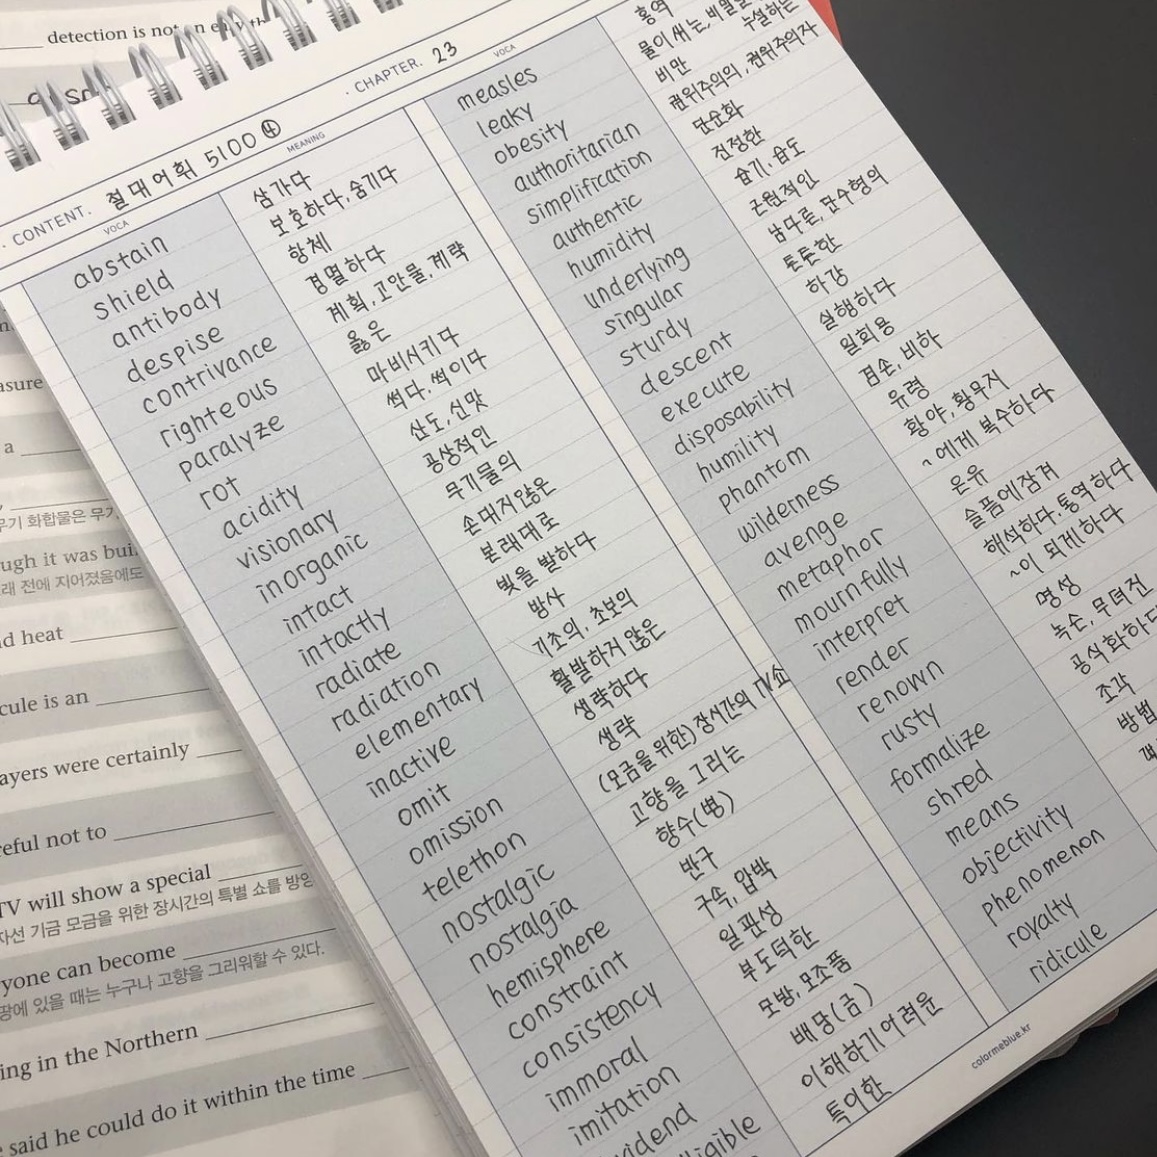 detection is not
CONTENT. 절대어휘 5100 ④
CHAPTER. 23
VOCA
MEANING
abstain 삼가다
shield 보호하다, 숨기다
antibody 항체
despise 경멸하다
contrivance 계획, 고안물, 계략
righteous 옳은
paralyze 마비시키다
rot 썩다, 썩이다
acidity 산도, 신맛
visionary 공상적인
inorganic 무기물의
intact 손대지않은
intactly 본래대로
radiate 빛을 발하다
radiation 방사
elementary 기초의, 초보의
inactive 활발하지 않은
omit 생략하다
omission 생략
telethon (모금을 위한) 장시간의 TV쇼
nostalgic 고향을 그리는
nostalgia 향수(병)
hemisphere 반구
constraint 구속, 압박
consistency 일관성
immoral 부도덕한
imitation 모방, 모조품
vidend 배당(금)
ligible 이해하기 어려운
특이한
VOCA
measles 홍역
leaky 물이 새는,
누설하는
obesity 비만
authoritarian 권위주의의, 권위주의자
simplification 단순화
authentic 진정한
humidity 습기, 습도
underlying 근원적인
singular 남다른, 단수형의
sturdy 튼튼한
descent 하강
execute 실행하다
disposability 일회용
humility 겸손, 비하
phantom 유령
wilderness 황야, 황무지
avenge ~에게 복수하다
metaphor 은유
mournfully 슬픔에 잠겨
interpret 해석하다, 통역하다
render ~이 되게하다
renown 명성
rusty 녹슨, 무뎌진
formalize 공식화하다
shred 조각
means 방법
objectivity 객
phenomenon
royalty
ridicule
colormeblue.kr
asure
a
무기 화합물은 무기
ugh it was buil
래 전에 지어졌음에도
d heat
cule is an
ayers were certainly
eful not to
TV will show a special
자선 기금 모금을 위한 장시간의 특별 쇼를 방영
yone can become
땅에 있을 때는 누구나 고향을 그리워할 수 있다.
ing in the Northern
said he could do it within the time